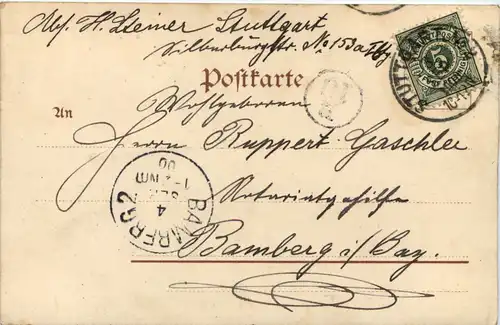 Abs. H. Steiner Stuttgart
Silberburgstr. No 153a
Postkarte
An
Wohlgeboren
Herrn Ruppert Gaschler
Notariatsgehilfe
Bamberg i/Bay.
STUTTGART
5
BAMBERG 2
4
SEP.
NM
00